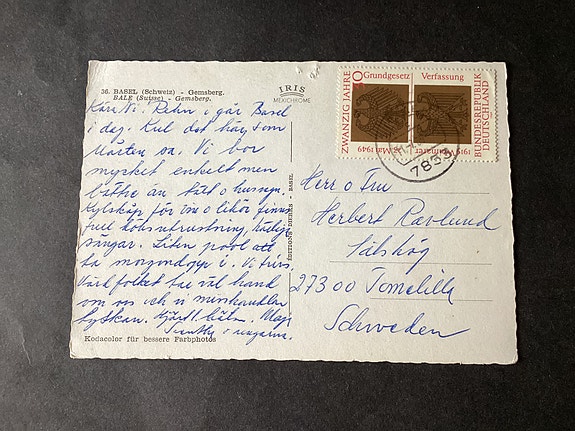 36. BASEL (Schweiz) - Gemsberg.
BALE (Suisse) - Gemsberg.
IRIS
MEXICHROME
Kära Ni. Rehn i går Basel
i dag. Kul det här som
Mårten sa. Vi bor
mycket enkelt men
bättre än hotell o husvagn.
Kylskåp för vin o likör finns
full köksutrustning, härliga
sängar. Liten pool att
ta morgondopp i. Vi trivs.
Värdfolket tar väl hand
om oss och vi misshandlar
tyskan. Maja
i
ÉDITIONS BASEL
Kodacolor für bessere Farbphotos
ZWANZIG JAHRE
30
Grundgesetz Verfassung
BUNDESREPUBLIK
DEUTSCHLAND
1919 Weimarer
Mai 1949
783
Herr o Fru
Herbert Ravlund
Sälshög
27300 Tomelilla
Schweden